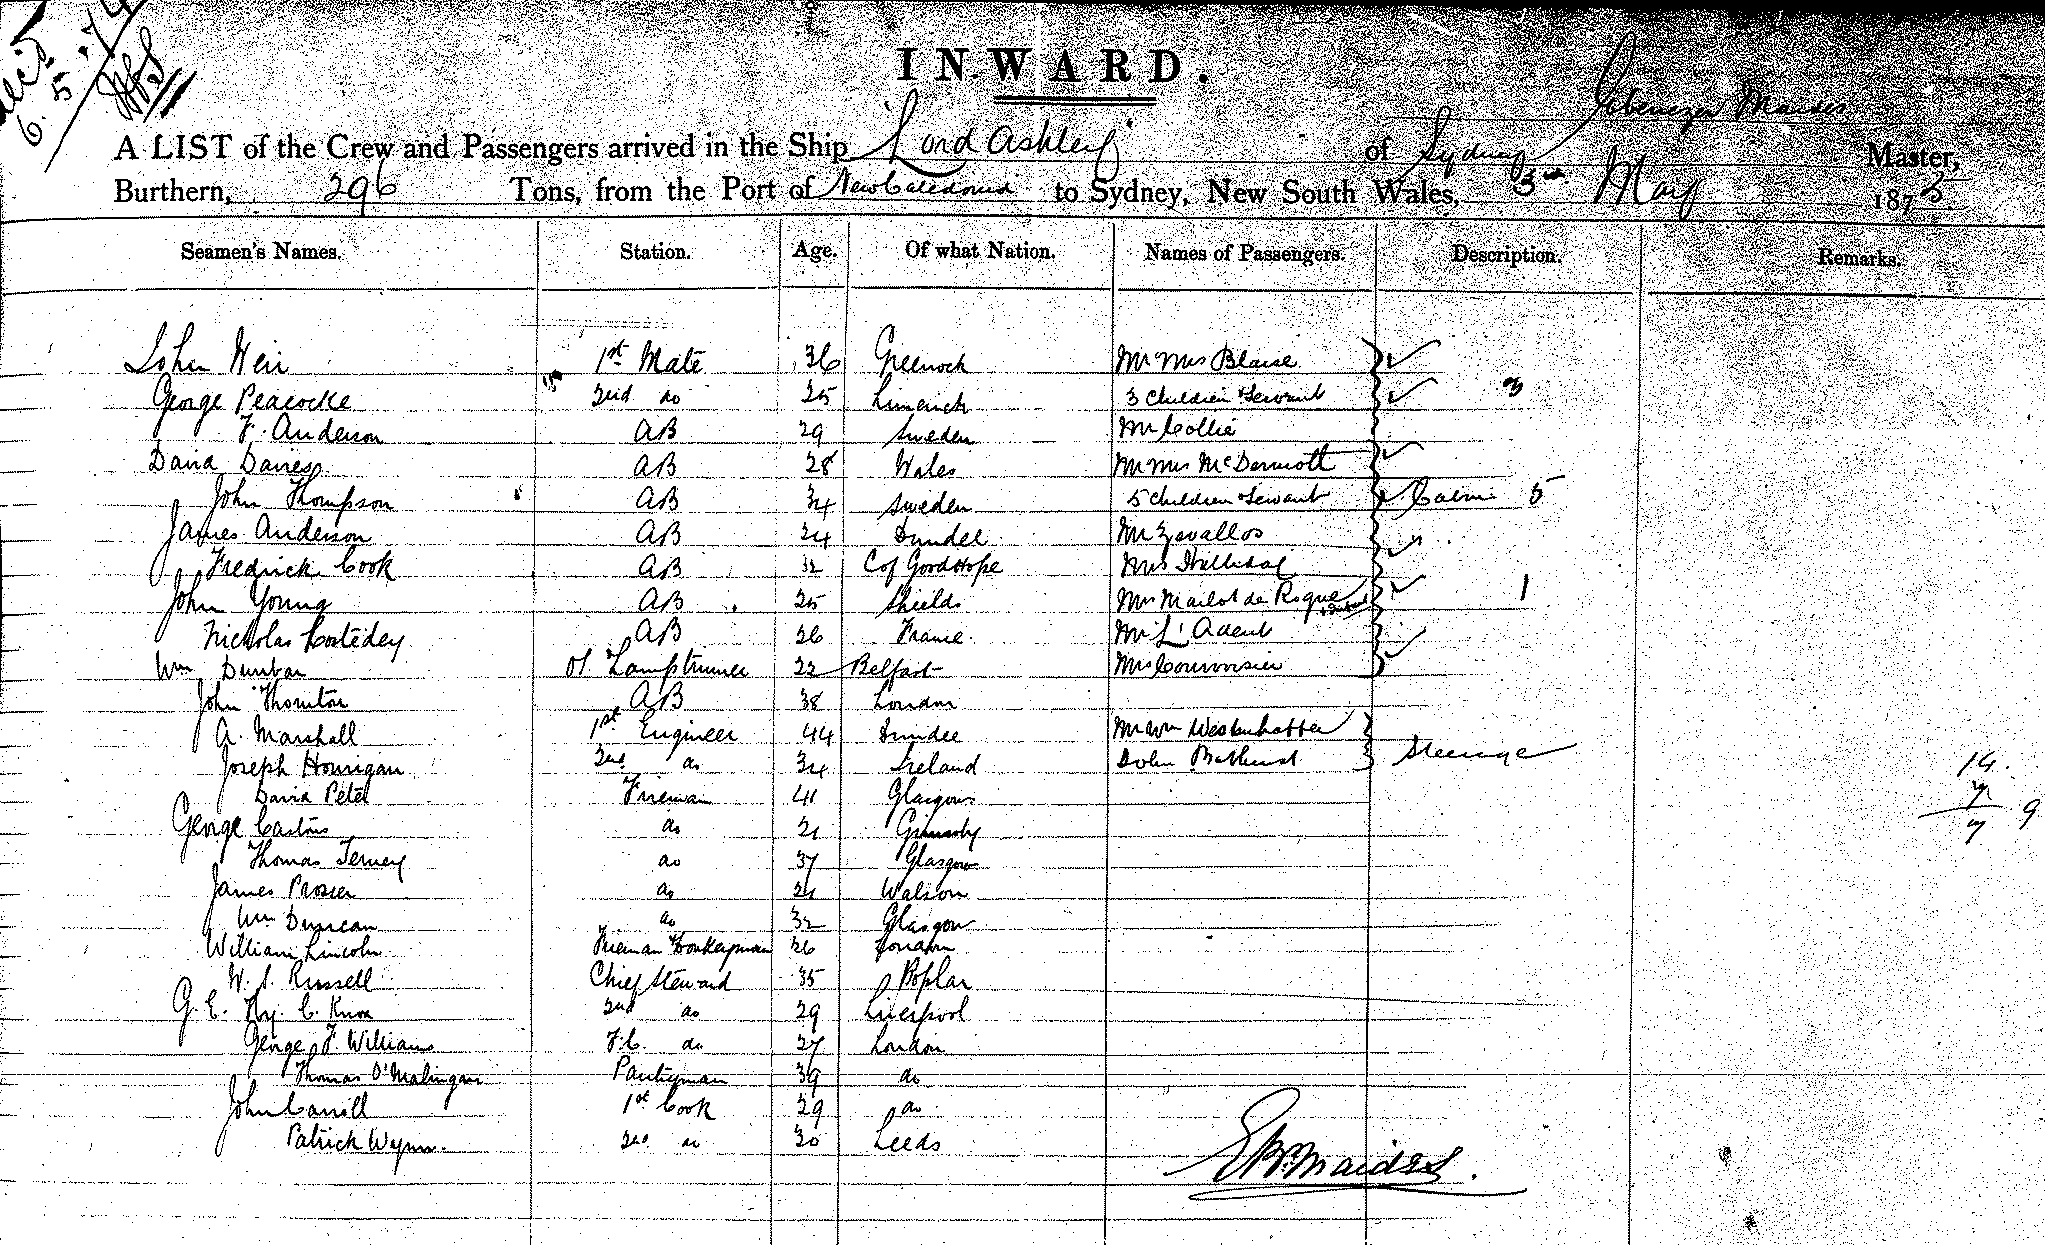 6. 5. 74
INWARD.
Ebenezer
A LIST of the Crew and Passengers arrived in the Ship "Lord Ashley" of Sydney Master,
Burthern, 296 Tons, from the Port of New Caledonia to Sydney, New South Wales, 3rd May 1875
Seamen's Names. Station. Age. Of what Nation. Names of Passengers. Description. Remarks.
John Weir 1st Mate 36 Greenock Mr Mrs Blaise
George Peacocke 2nd do 25 Limerick 3 Children & Servant 3
F. Anderson AB 29 Sweden Mr Collie
David Davies AB 28 Wales Mr Mrs McDermott
John Thompson AB 34 Sweden 5 Children & Servant Cabin 5
James Anderson AB 24 Dundee Mr Zevallos
Fredrick Cook AB 32 C of Good Hope Mrs Halliday
John Young AB 25 Shields Mrs Mailot de Roque 1
Nicholas AB 26 France Mr L'
Wm Dunbar Lamptrimmer 22 Belfast Mrs Courvoisier
John Thornton AB 38 London
A. Marshall 1st Engineer 44 Dundee Mr Wm
Joseph Hourigan 2nd do 34 Ireland John Bathurst Steerage
David Peter Fireman 41 Glasgow 14
George do 21 Grimsby 7 9
Thomas do 37 Glasgow 7
James Prosser do 21
Wm Duncan do 32 Glasgow
William Lincoln Fireman & Donkeyman 26 London
W. S. Russell Chief Steward 35 Poplar
G. E. Hy. C. Knox 2nd do 29 Liverpool
George F. Williams F.C. do 27 London
Thomas Pantryman 39 do
John Carroll 1st Cook 29 do
Patrick Wynn. 2nd do 30 Leeds